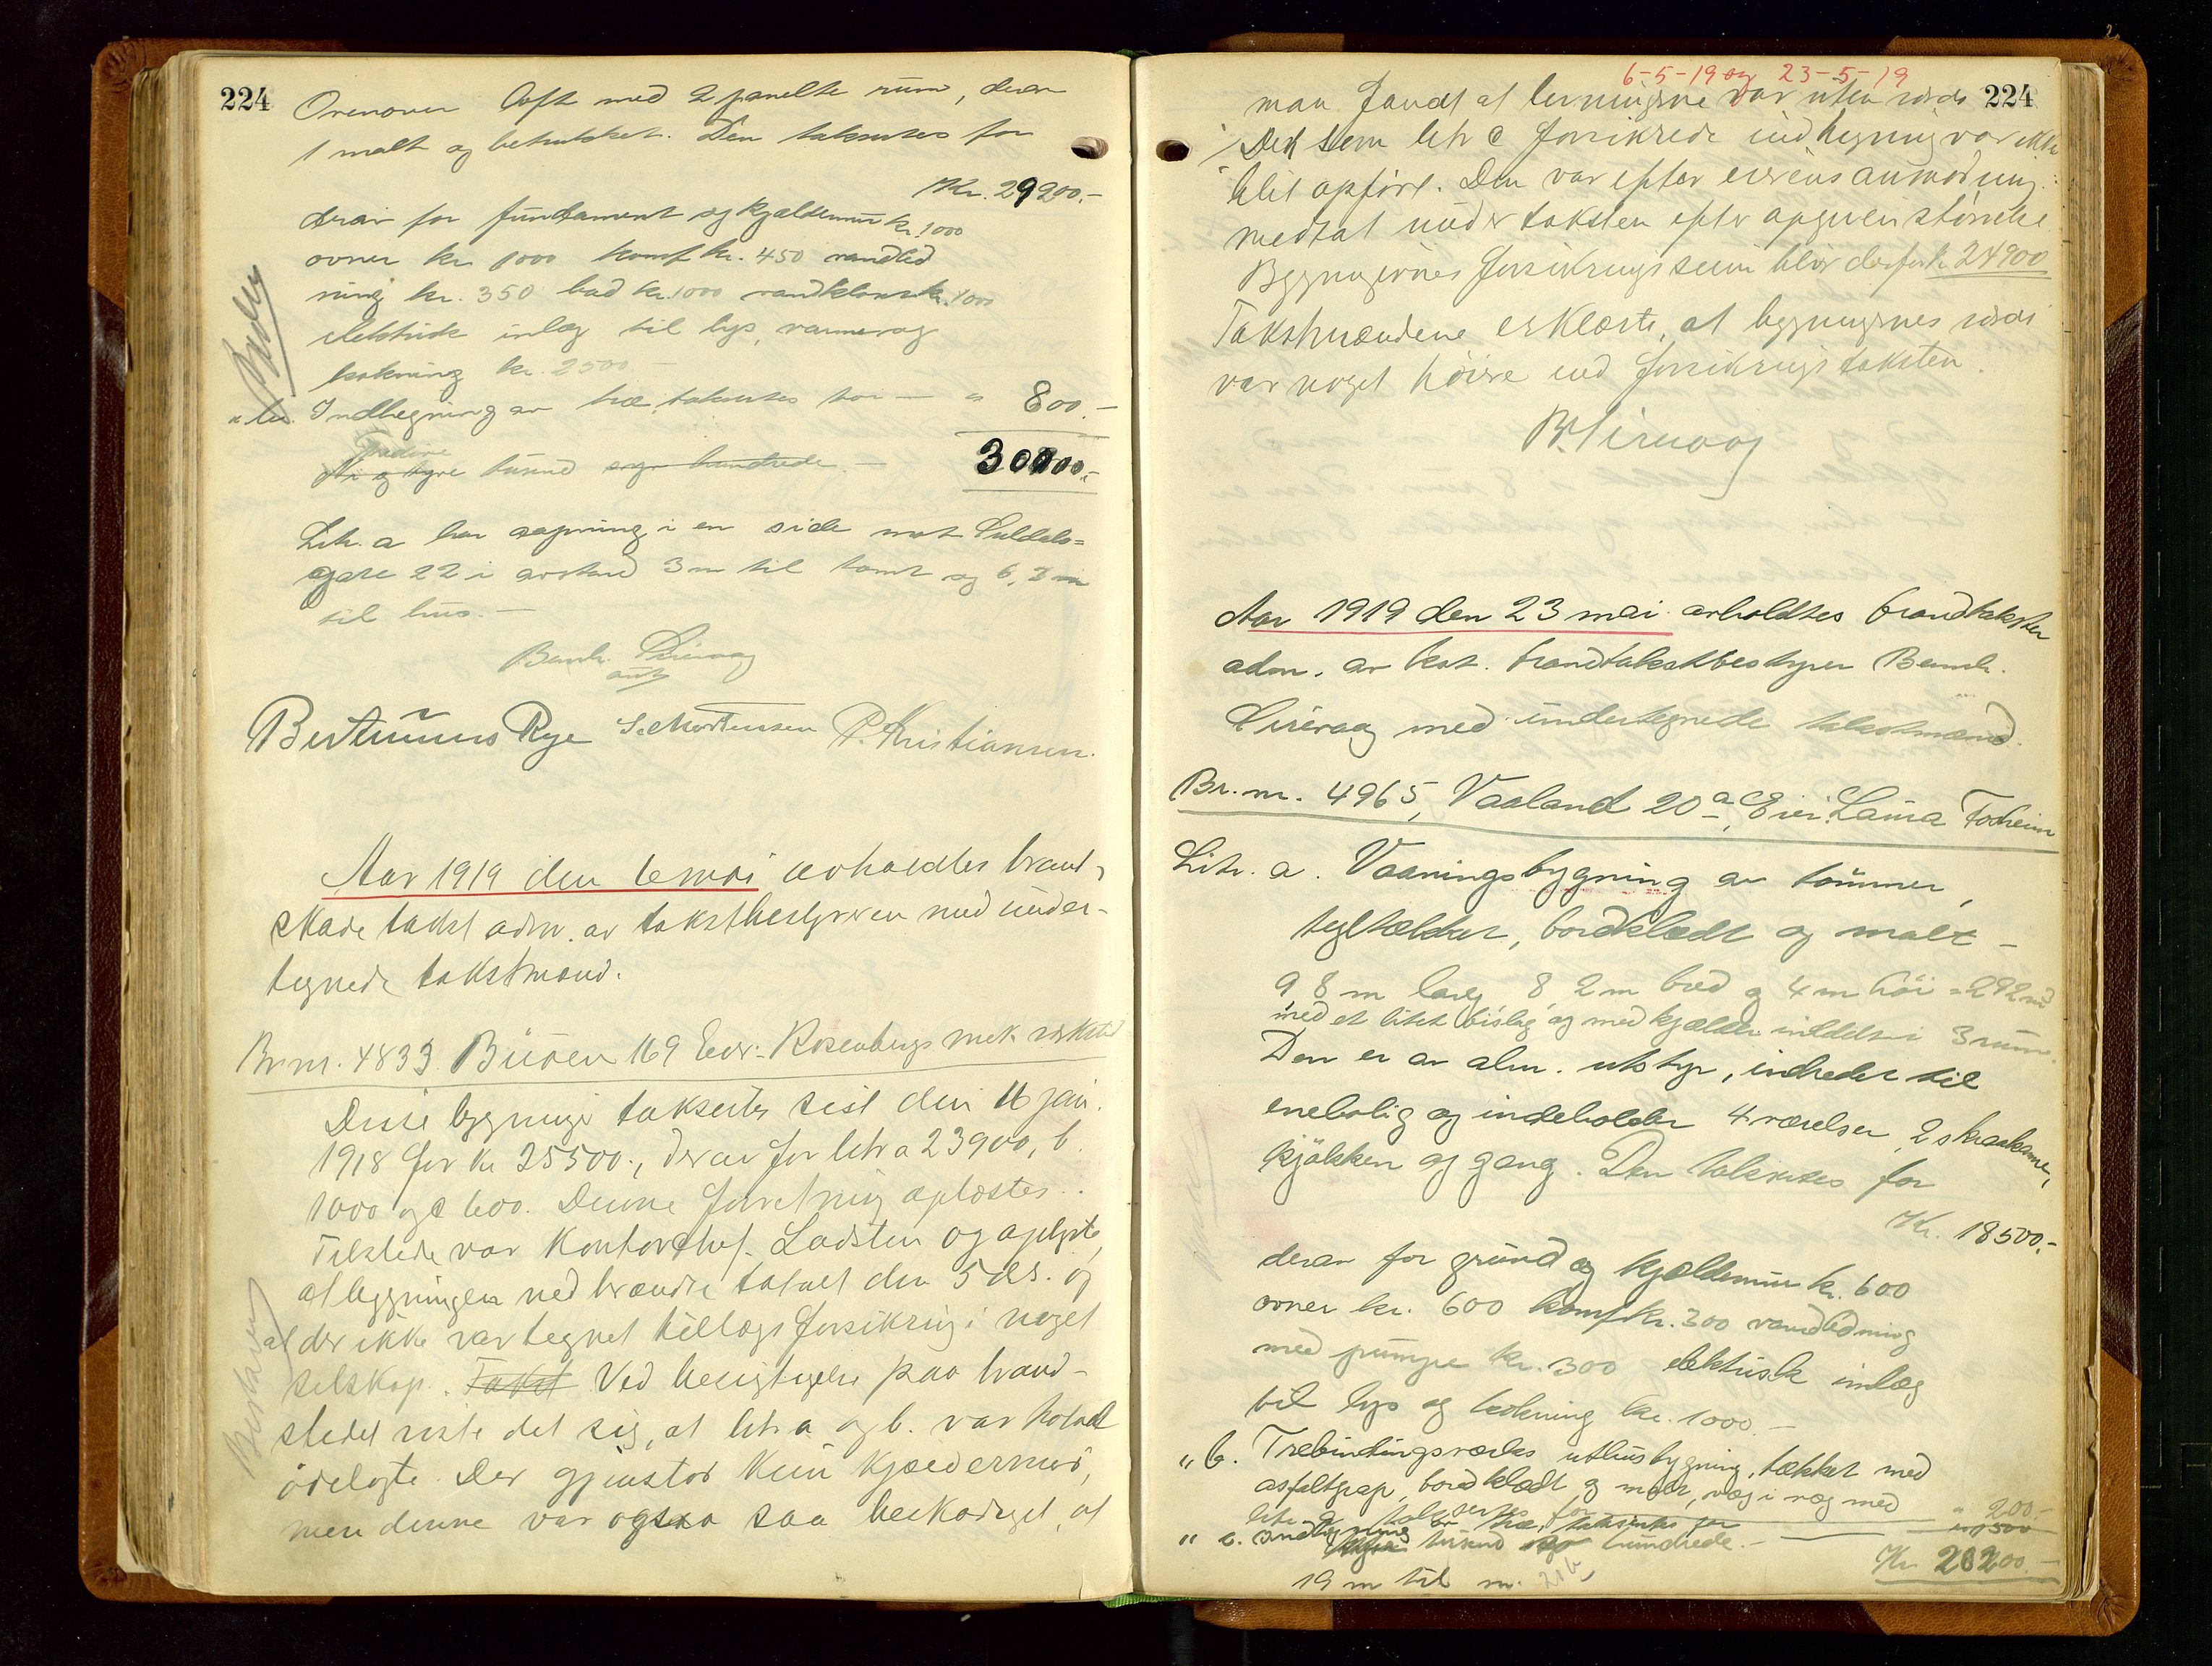 224
Ovenover loft med 2 panelte rum, derav
1 malt og betrukket. Den takseres for
Kr. 29200.-
derav for fundament og kjældermur kr. 1000
ovner kr. 1000 komf. kr. 450 vandled
ning kr. 350 bad kr. 1000 vandkloset kr. 1000
elektrisk inlæg til lys, varme og
kokning kr. 2500
Indhegning av træ, takseres for — " 800.-
Tredive
Ni og tyve tusend hundrede. — 30000.-
Litr. a har aapning i en side mot Suldals=
gate 22 i avstand 3 m til tomt og 6,3 m
til hus. —
Bernh. Sirevaag
Bertinius Rege S. Mortensen P. Kristiansen.
Aar 1919 den 6 mai avholdtes brand-
skade takst adm. av takstbestyreren med under-
tegnede takstmænd.
Br. nr. 4833 Buøen 169 Eier: Rosenbergs mek. verksted
Disse bygninger taksertes sist den 16 jan.
1918 for kr 25500., derav for litr a 23900, b.
1000 og c 600. Denne forretning oplæstes.
Tilstede var kontorchef Ladsten og oplyste,
at bygningen nedbrændte totalt den 5 ds. og
at der ikke var tegnet tillægsforsikring i noget
selskap. Takst Ved besigtigelse paa brand-
stedet viste det sig, at litr a og b. var totalt
ödelagte. Der gjenstod kun kjældermur,
men denne var ogsaa saa beskadiget, at
6-5-19 og 23-5-19
224
man fandt at levningerne var uten værdi
Den som litr c forsikrede indhegning var ikke
blit opført. Den var efter eierens anmodning
medtat under taksten efter opgiven størrelse
Bygningernes forsikringssum blir derfor kr 24900
Takstmændene erklærte, at bygningernes værdi
var noget höiere end forsikringstaksten.
B. Sirevaag
Aar 1919 den 23 mai avholdtes brandtakster
adm. av kst. brandtakstbestyrer Bernh.
Sirevaag med undertegnede takstmænd.
Br. nr. 4965, Vaaland 20 a, Eier: Laura Fosheim
Litr. a. Vaaningsbygning av tømmer,
teglækket, bordklædt og malt -
9,8 m lang, 8,2 m bred og 4 m höi = 292 m3
med et litet bislag og med kjælder inddelt i 3 rum.
Den er av alm. utstyr, indredet til
enebolig og indeholder 4 værelser, 2 skraakamre,
kjökken og gang. Den takseres for
Kr. 18500.-
derav for grund og kjældermur kr. 600
ovner kr. 600 komf. kr. 300 vandledning
med pumpe kr. 300 elektrisk inlæg
til lys og kokning kr. 1000. —
" b. Træbindingsverks uthusbygning, tækket med
asfaltpap, bordklædt og malt, væg i væg med
litr a takseres for " 200.-
" c. Indhegning av træ, takseres for — " 1500
tusend hundrede. —
Kr 20200.-
19 m til n.